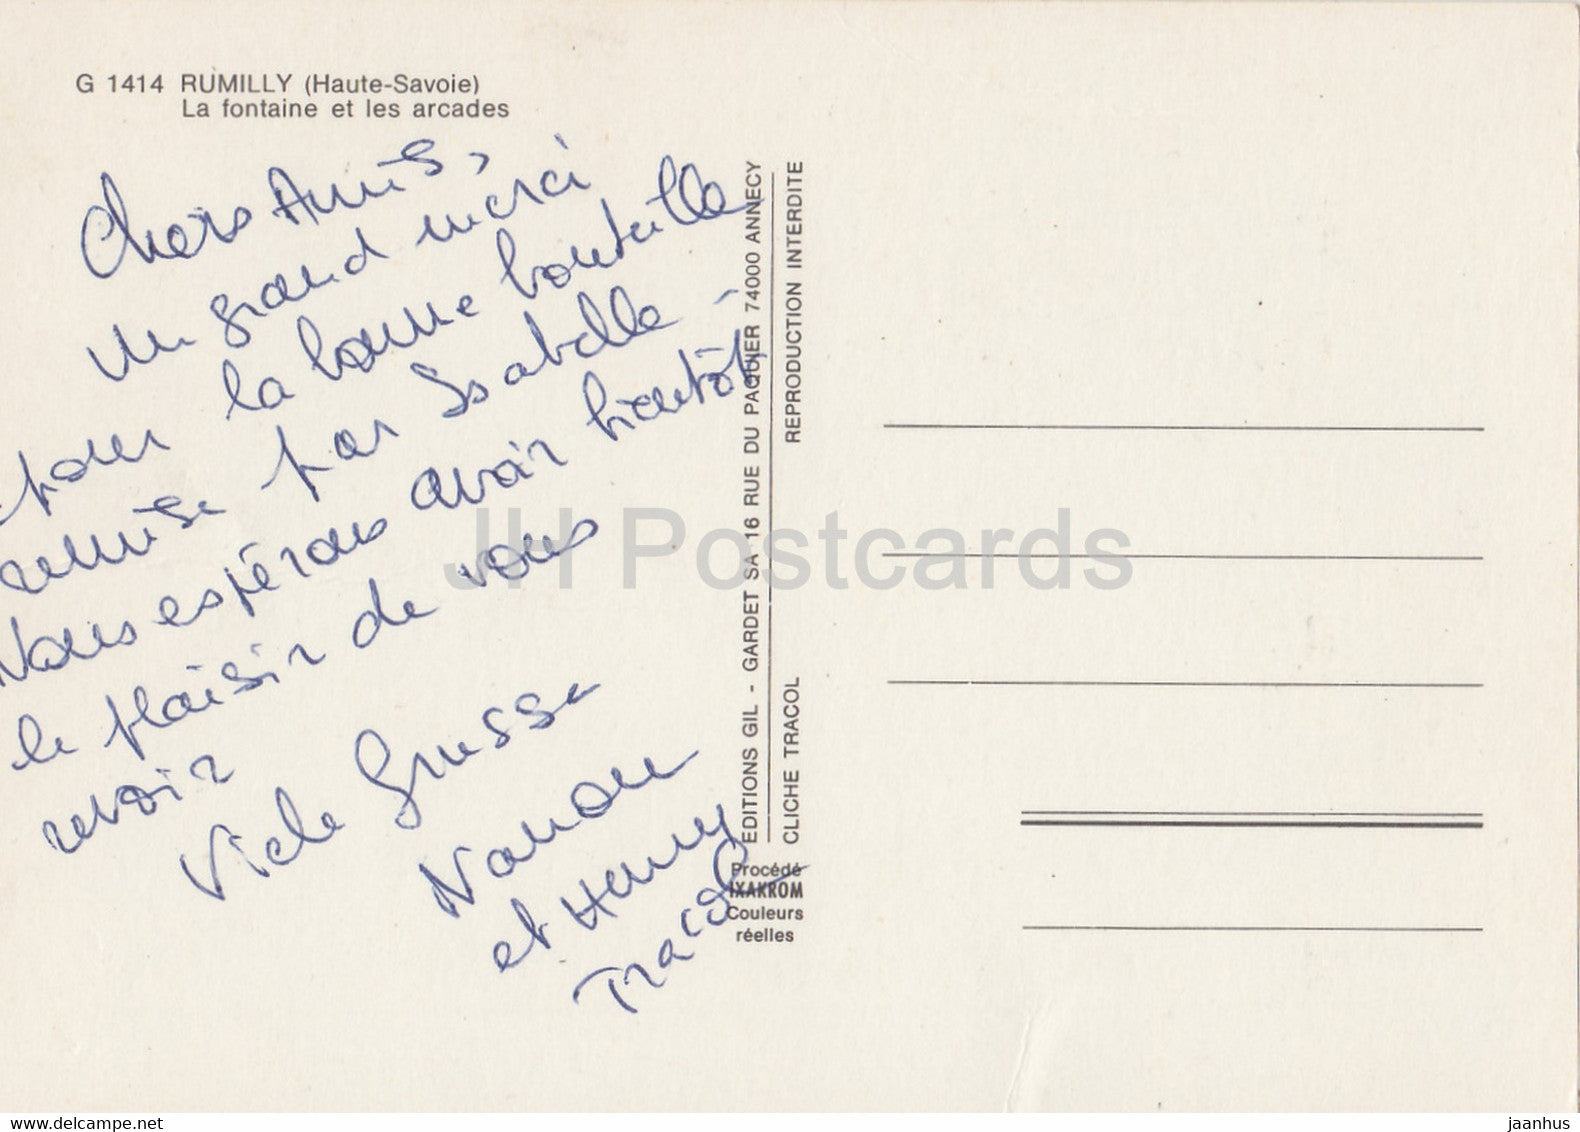 G 1414 RUMILLY (Haute-Savoie)
La fontaine et les arcades
Chers Amis,
un grand merci
pour la bonne bouteille
remise par Isabelle -
Nous espérons avoir bientôt
le plaisir de vous
revoir
Viele Grusse
Nanou
et Henry
Tracol
EDITIONS GIL - GARDET SA 16 RUE DU PAQUIER 74000 ANNECY
CLICHE TRACOL REPRODUCTION INTERDITE
Procédé
IXAKROM
Couleurs
réelles
JH Postcards
www.delcampe.net
jaanhus